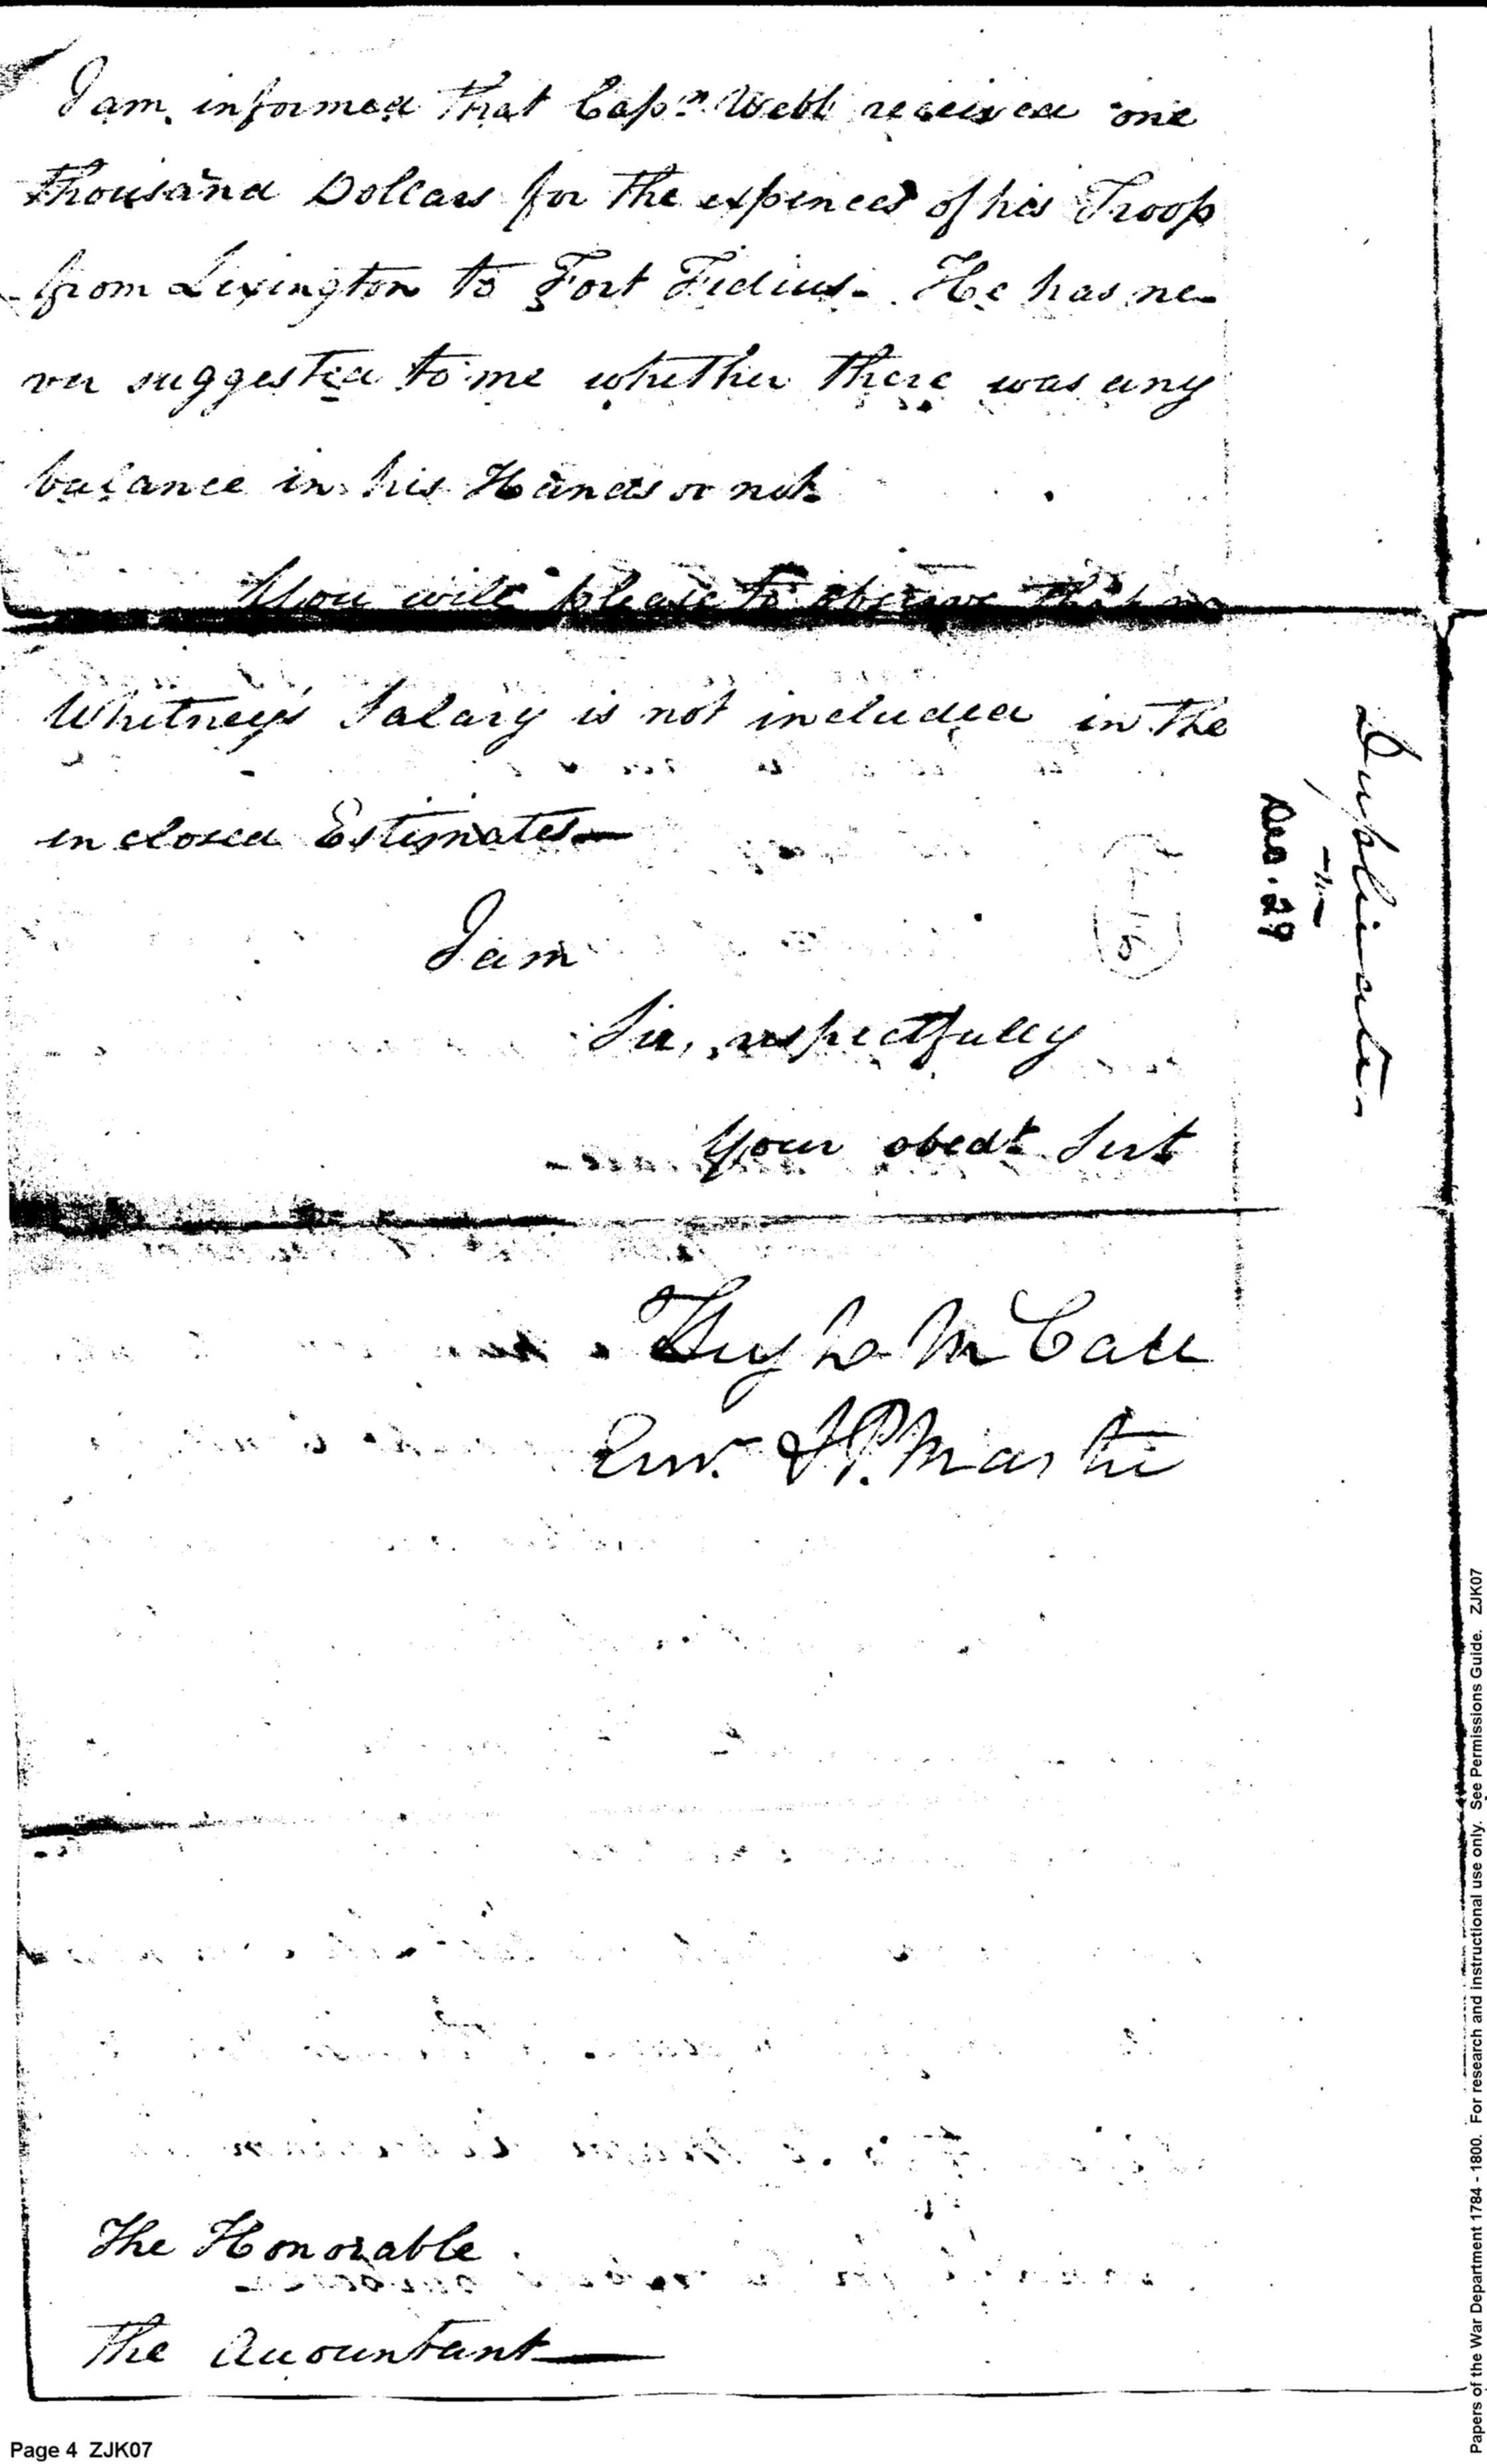 I am informed that Capn. Webb received one
thousand Dollars for the expences of his Troop
from Lexington to Fort Fidius - He has ne-
ver suggested to me whether there was any
balance in his Hands or not
You will please to observe that
Whitney's Salary is not included in the
inclosed Estimates—
I am
Sir, respectfully
Your obedt Servt
Hugh McCall
The Honorable
The Accountant—
Duplicates
Dec. 29
Papers of the War Department 1784 - 1800. For research and instructional use only. See Permissions Guide. ZJK07
Page 4 ZJK07